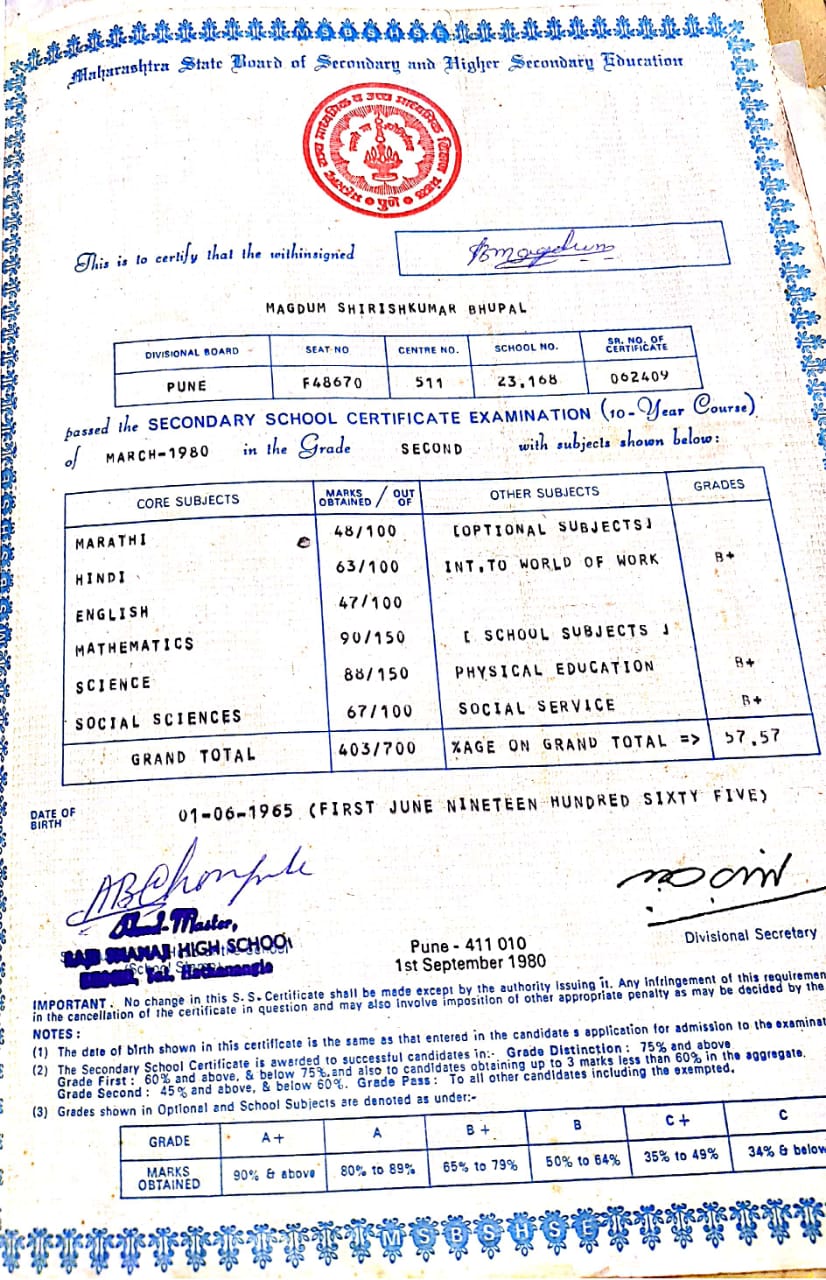 MSBSHSE
Maharashtra State Board of Secondary and Higher Secondary Education
This is to certify that the withinsigned
MAGDUM SHIRISHKUMAR BHUPAL
DIVISIONAL BOARD SEAT NO CENTRE NO. SCHOOL NO. SR. NO. OF CERTIFICATE
PUNE F48670 511 23,168 062409
passed the SECONDARY SCHOOL CERTIFICATE EXAMINATION (10-Year Course)
of MARCH-1980 in the Grade SECOND with subjects shown below:
CORE SUBJECTS MARKS OBTAINED / OUT OF OTHER SUBJECTS GRADES
MARATHI 48/100 [OPTIONAL SUBJECTS]
HINDI 63/100 INT.TO WORLD OF WORK B+
ENGLISH 47/100
MATHEMATICS 90/150 [ SCHOOL SUBJECTS ]
SCIENCE 88/150 PHYSICAL EDUCATION B+
SOCIAL SCIENCES 67/100 SOCIAL SERVICE B+
GRAND TOTAL 403/700 %AGE ON GRAND TOTAL => 57.57
DATE OF BIRTH 01-06-1965 (FIRST JUNE NINETEEN HUNDRED SIXTY FIVE)
Head-Master,
HIGH SCHOOL
Pune - 411 010
1st September 1980
Divisional Secretary
IMPORTANT. No change in this S.S.Certificate shall be made except by the authority issuing it. Any infringement of this requiremen
in the cancellation of the certificate in question and may also involve imposition of other appropriate penalty as may be decided by the
NOTES :
(1) The date of birth shown in this certificate is the same as that entered in the candidate s application for admission to the examinat
(2) The Secondary School Certificate is awarded to successful candidates in:- Grade Distinction : 75% and above
Grade First : 60% and above, & below 75%.and also to candidates obtaining up to 3 marks less than 60% in the aggregate.
Grade Second : 45% and above, & below 60%. Grade Pass : To all other candidates including the exempted.
(3) Grades shown in Optional and School Subjects are denoted as under:-
GRADE A+ A B+ B C+ C
MARKS OBTAINED 90% & above 80% to 89% 65% to 79% 50% to 64% 35% to 49% 34% & below
MSBSHSE